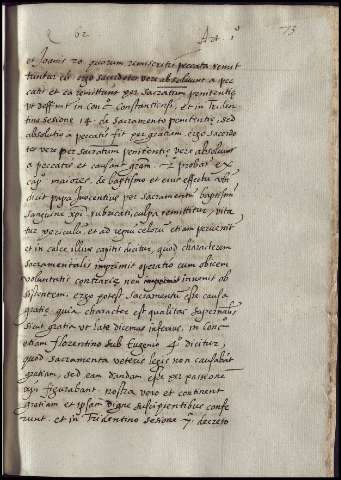 Q 62 Art 1º 73
et Joanis 20 quorum remiseritis peccata remit
tuntur eis ergo sacerdotes vere absolvunt a pec
catis et ea remittunt per sacratum penitentie
ut deffinit in conc. Constantiensi, et in Triden
tino sesione 14 de sacramento penitentie, sed
absolutio a peccatis fit per gratiam. ergo sacerdo
tes vere per sacratum penitentie vere absolvunt
a peccatis et causant gram. 2º probat ex
cap. maiores de baptismo et eius effectu ubi
dicit papa Inocentius per sacramentum baptismi
sanguine xpi rubricati, culpa remittitur, vita
tur periculum, et ad regnum celorum etiam pervenit
et in calce illius capitis dicitur, quod characterem
sacramentalis imprimit operatio cum obicem
voluntatis contrarie non invenit ob
sistentem, ergo potest sacramentum esse causa
gratie quia character est qualitas supernalis
sicut gratia ut late dicemus inferius, in conc
etiam florentino sub Eugenio 4º dicitur,
quod sacramenta veteris legis non causabant
gratiam, sed eam dandam esse per passionem
xpi figurabant. nostra vero et continent
gratiam et ipsam digne suscipientibus confe
runt. et in Tridentino sesione 7 decreto